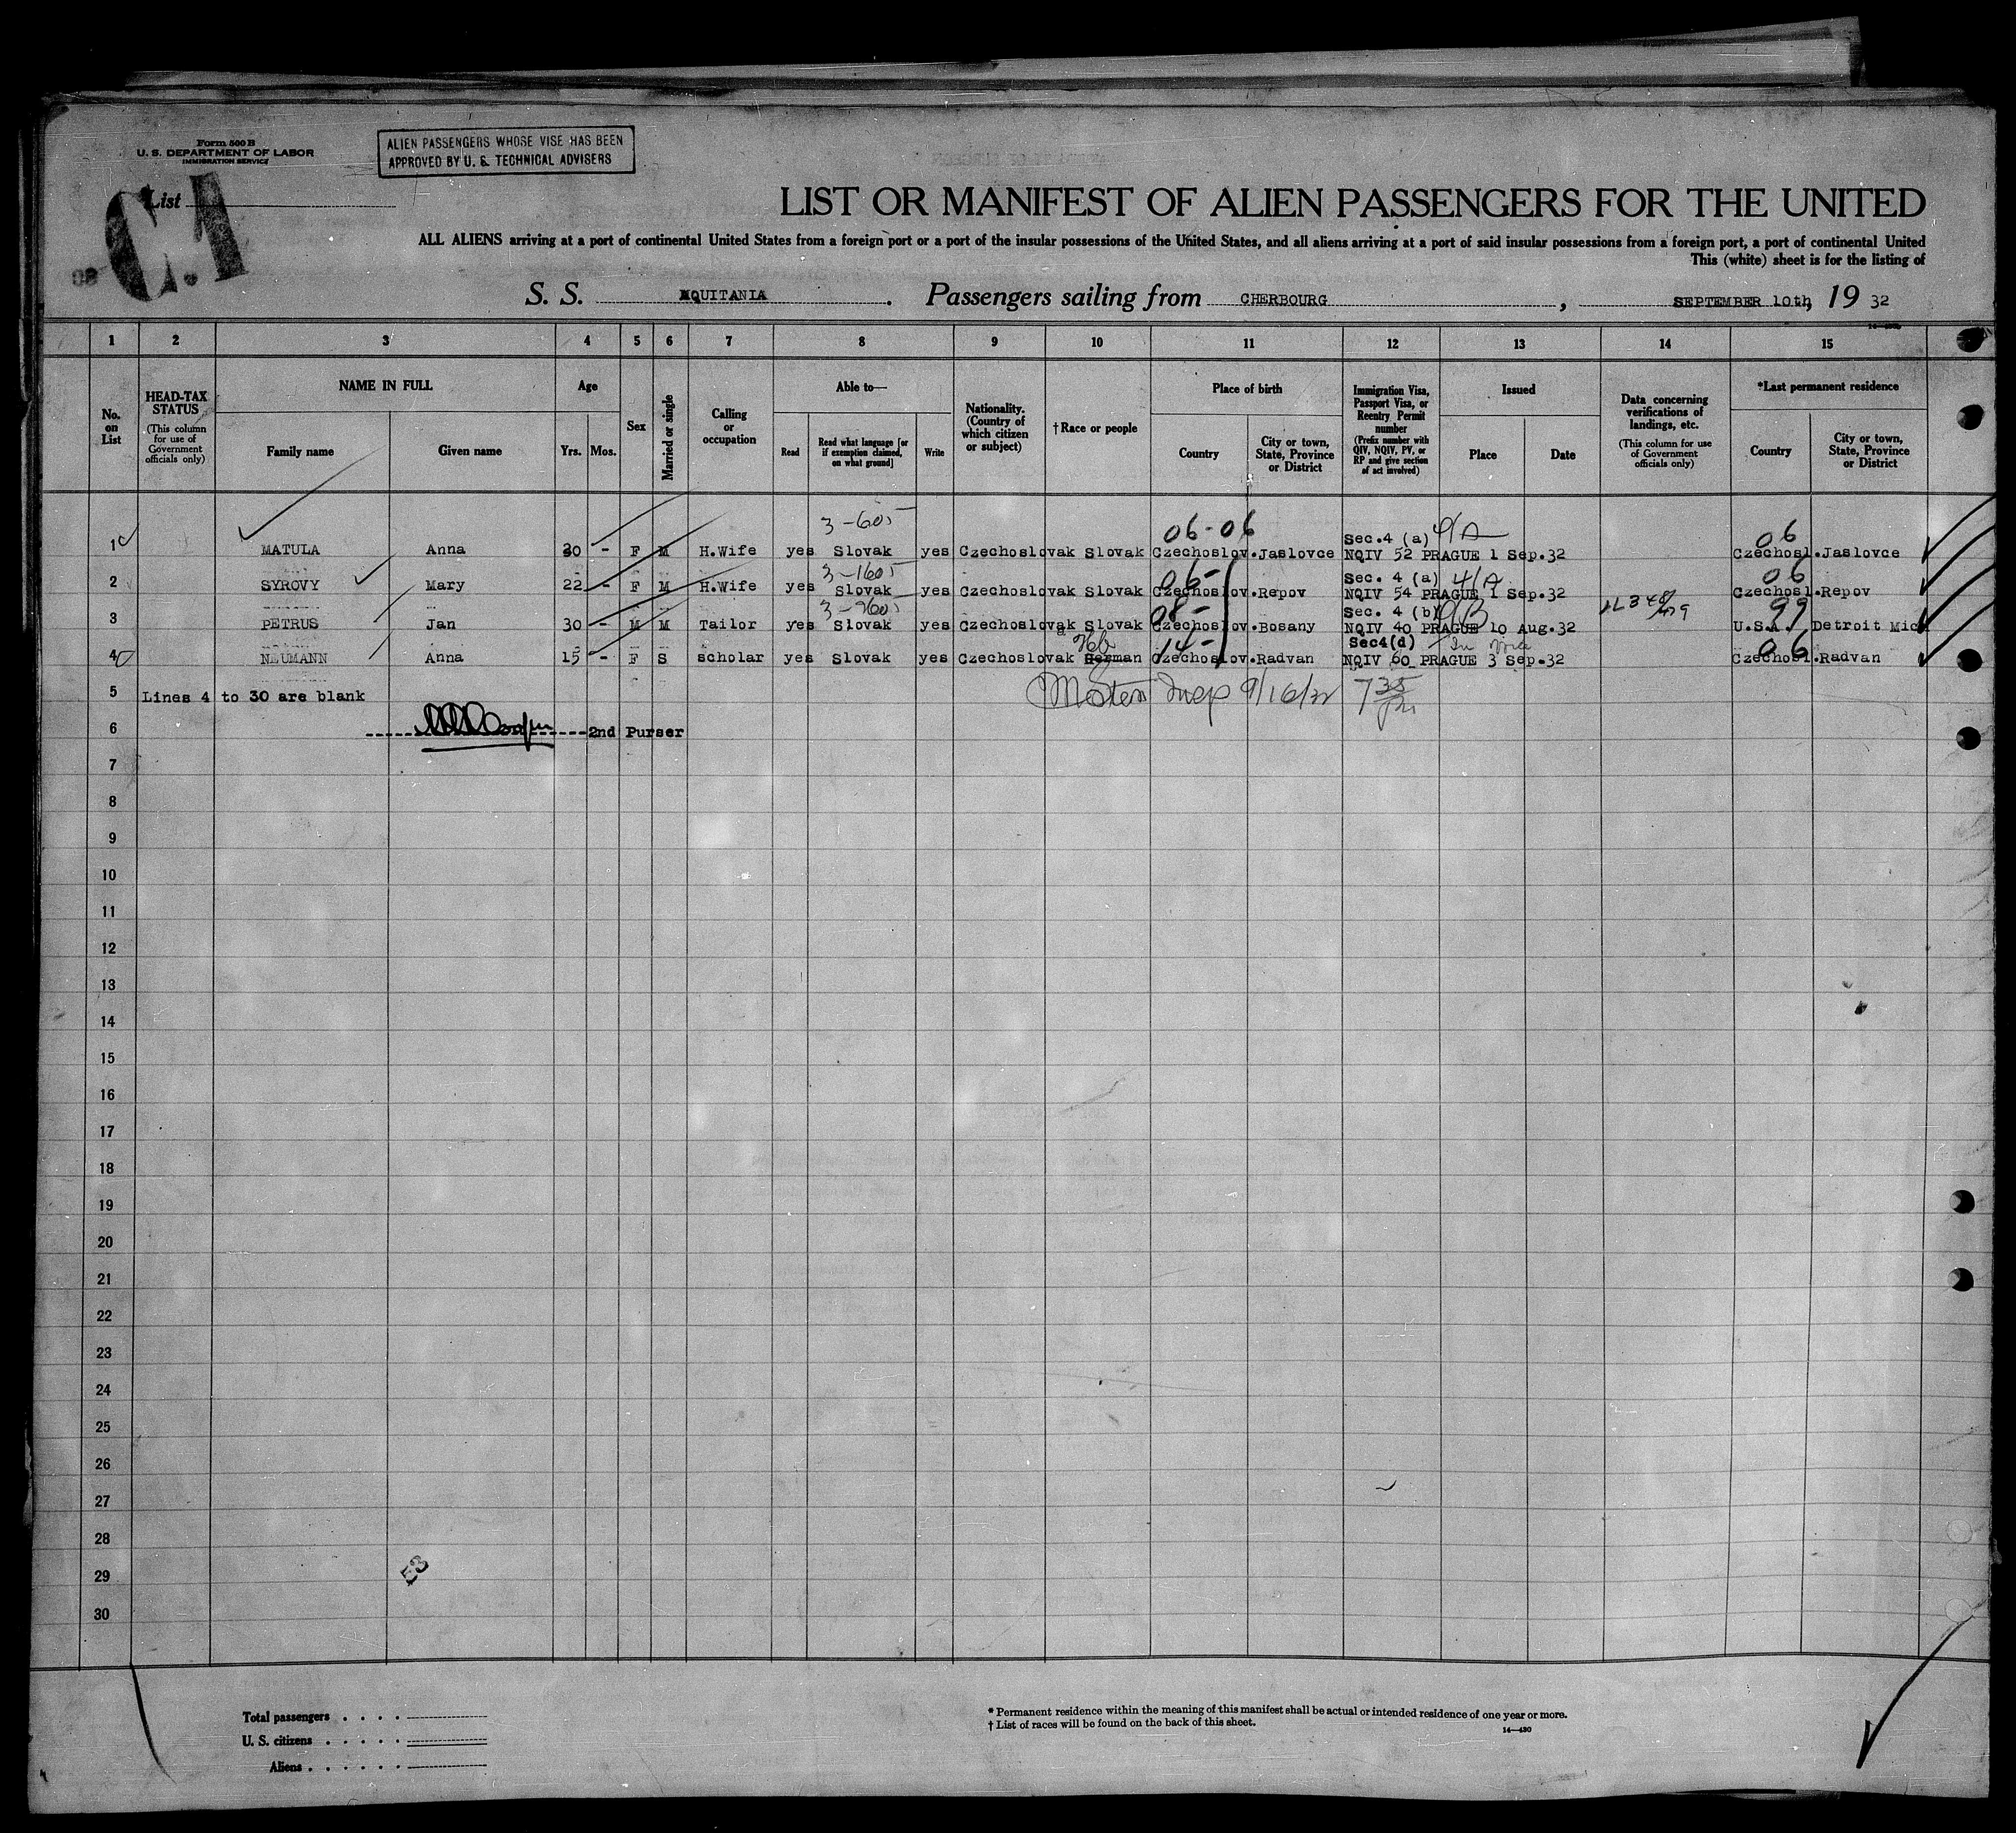 Form 500 B
U. S. DEPARTMENT OF LABOR
IMMIGRATION SERVICE
ALIEN PASSENGERS WHOSE VISE HAS BEEN
APPROVED BY U. S. TECHNICAL ADVISERS
List
C.1
LIST OR MANIFEST OF ALIEN PASSENGERS FOR THE UNITED
ALL ALIENS arriving at a port of continental United States from a foreign port or a port of the insular possessions of the United States, and all aliens arriving at a port of said insular possessions from a foreign port, a port of continental United
This (white) sheet is for the listing of
S. S. AQUITANIA . Passengers sailing from CHERBOURG , SEPTEMBER 10th, 19 32
1 2 3 4 5 6 7 8 9 10 11 12 13 14 15
No. on List
HEAD-TAX STATUS (This column for use of Government officials only)
NAME IN FULL
Family name Given name
Age
Yrs. Mos.
Sex
Married or single
Calling or occupation
Able to—
Read Read what language [or if exemption claimed, on what ground] Write
Nationality. (Country of which citizen or subject)
†Race or people
Place of birth
Country City or town, State, Province or District
Immigration Visa, Passport Visa, or Reentry Permit number (Prefix number with QIV, NQIV, PV, or RP and give section of act involved)
Issued
Place Date
Data concerning verifications of landings, etc. (This column for use of Government officials only)
*Last permanent residence
Country City or town, State, Province or District
3-605 06-06 Sec.4 (a) 4/A 06
1 MATULA Anna 30 - F M H.Wife yes Slovak yes Czechoslovak Slovak Czechoslov.Jaslovce NQIV 52 PRAGUE 1 Sep.32 Czechosl.Jaslovce
3-1605 06- Sec. 4 (a) 4/A 06
2 SYROVY Mary 22 - F M H.Wife yes Slovak yes Czechoslovak Slovak Czechoslov.Repov NQIV 54 PRAGUE 1 Sep.32 Czechosl.Repov
08- Sec. 4 (b) 99
3 PETRUS Jan 30 - M M Tailor yes Slovak yes Czechoslovak Slovak Czechoslov.Bosany NQIV 40 PRAGUE 10 Aug.32 U.S.A. Detroit Mich
Heb 14- Sec4(d) 06
4 NEUMANN Anna 15 - F S scholar yes Slovak yes Czechoslovak German Czechoslov.Radvan NQIV 60 PRAGUE 3 Sep.32 Czechosl.Radvan
5 Lines 4 to 30 are blank Insp 9/16/32 7 35 pm
6 2nd Purser
7
8
9
10
11
12
13
14
15
16
17
18
19
20
21
22
23
24
25
26
27
28
29
30
Total passengers . . . .
U. S. citizens . . . . .
Aliens . . . . . .
* Permanent residence within the meaning of this manifest shall be actual or intended residence of one year or more.
† List of races will be found on the back of this sheet.
14—430